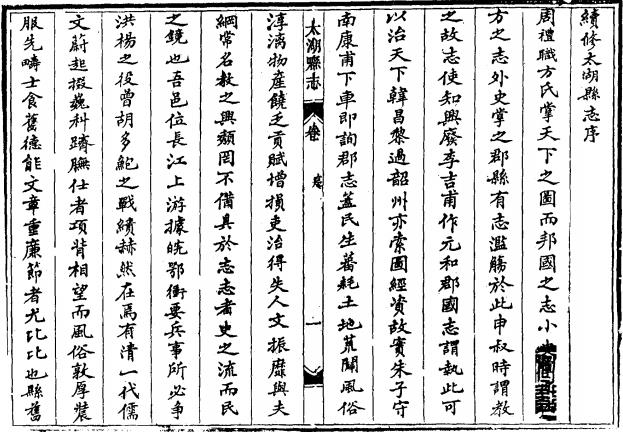 續修太湖縣志序
周禮職方氏掌天下之圖而邦國之志小
方之志外史掌之郡縣有志濫觴於此申叔時謂教
之故志使知興廢李吉甫作元和郡國志謂執此可
以治天下韓昌黎過韶州亦索圖經資故實朱子守
南康甫下車即詢郡志蓋民生蕃耗土地荒闢風俗
太湖縣志 卷 一
淳漓物產饒乏貢賦增損吏治得失人文振靡與夫
綱常名教之興頹罔不備具於志志者史之流而民
之鏡也吾邑位長江上游據皖鄂衝要兵事所必爭
洪楊之役曾胡多鮑之戰績赫然在焉有清一代儒
文蔚起掇巍科躋膴仕者項背相望而風俗敦厚農
服先疇士食舊德能文章重廉節者尤比比也縣舊